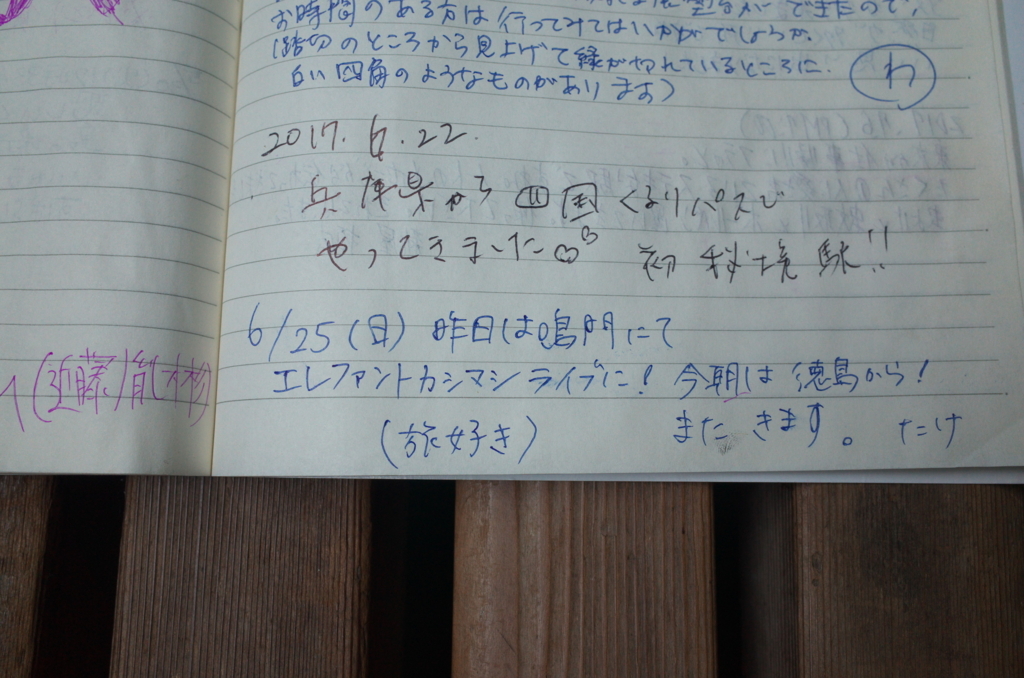 お時間のある方は行ってみてはいかがでしょうか。
(踏切のところから見上げて緑が切れているところに
白い四角のようなものがあります)
わ
2017.6.22.
兵庫県から四国くるりパスで
やってきました 初 駅!!
6/25(日) 昨日は鳴門にて
エレファントカシマシライブに! 今朝は徳島から!
(旅好き) また きます。 たけ
(近藤